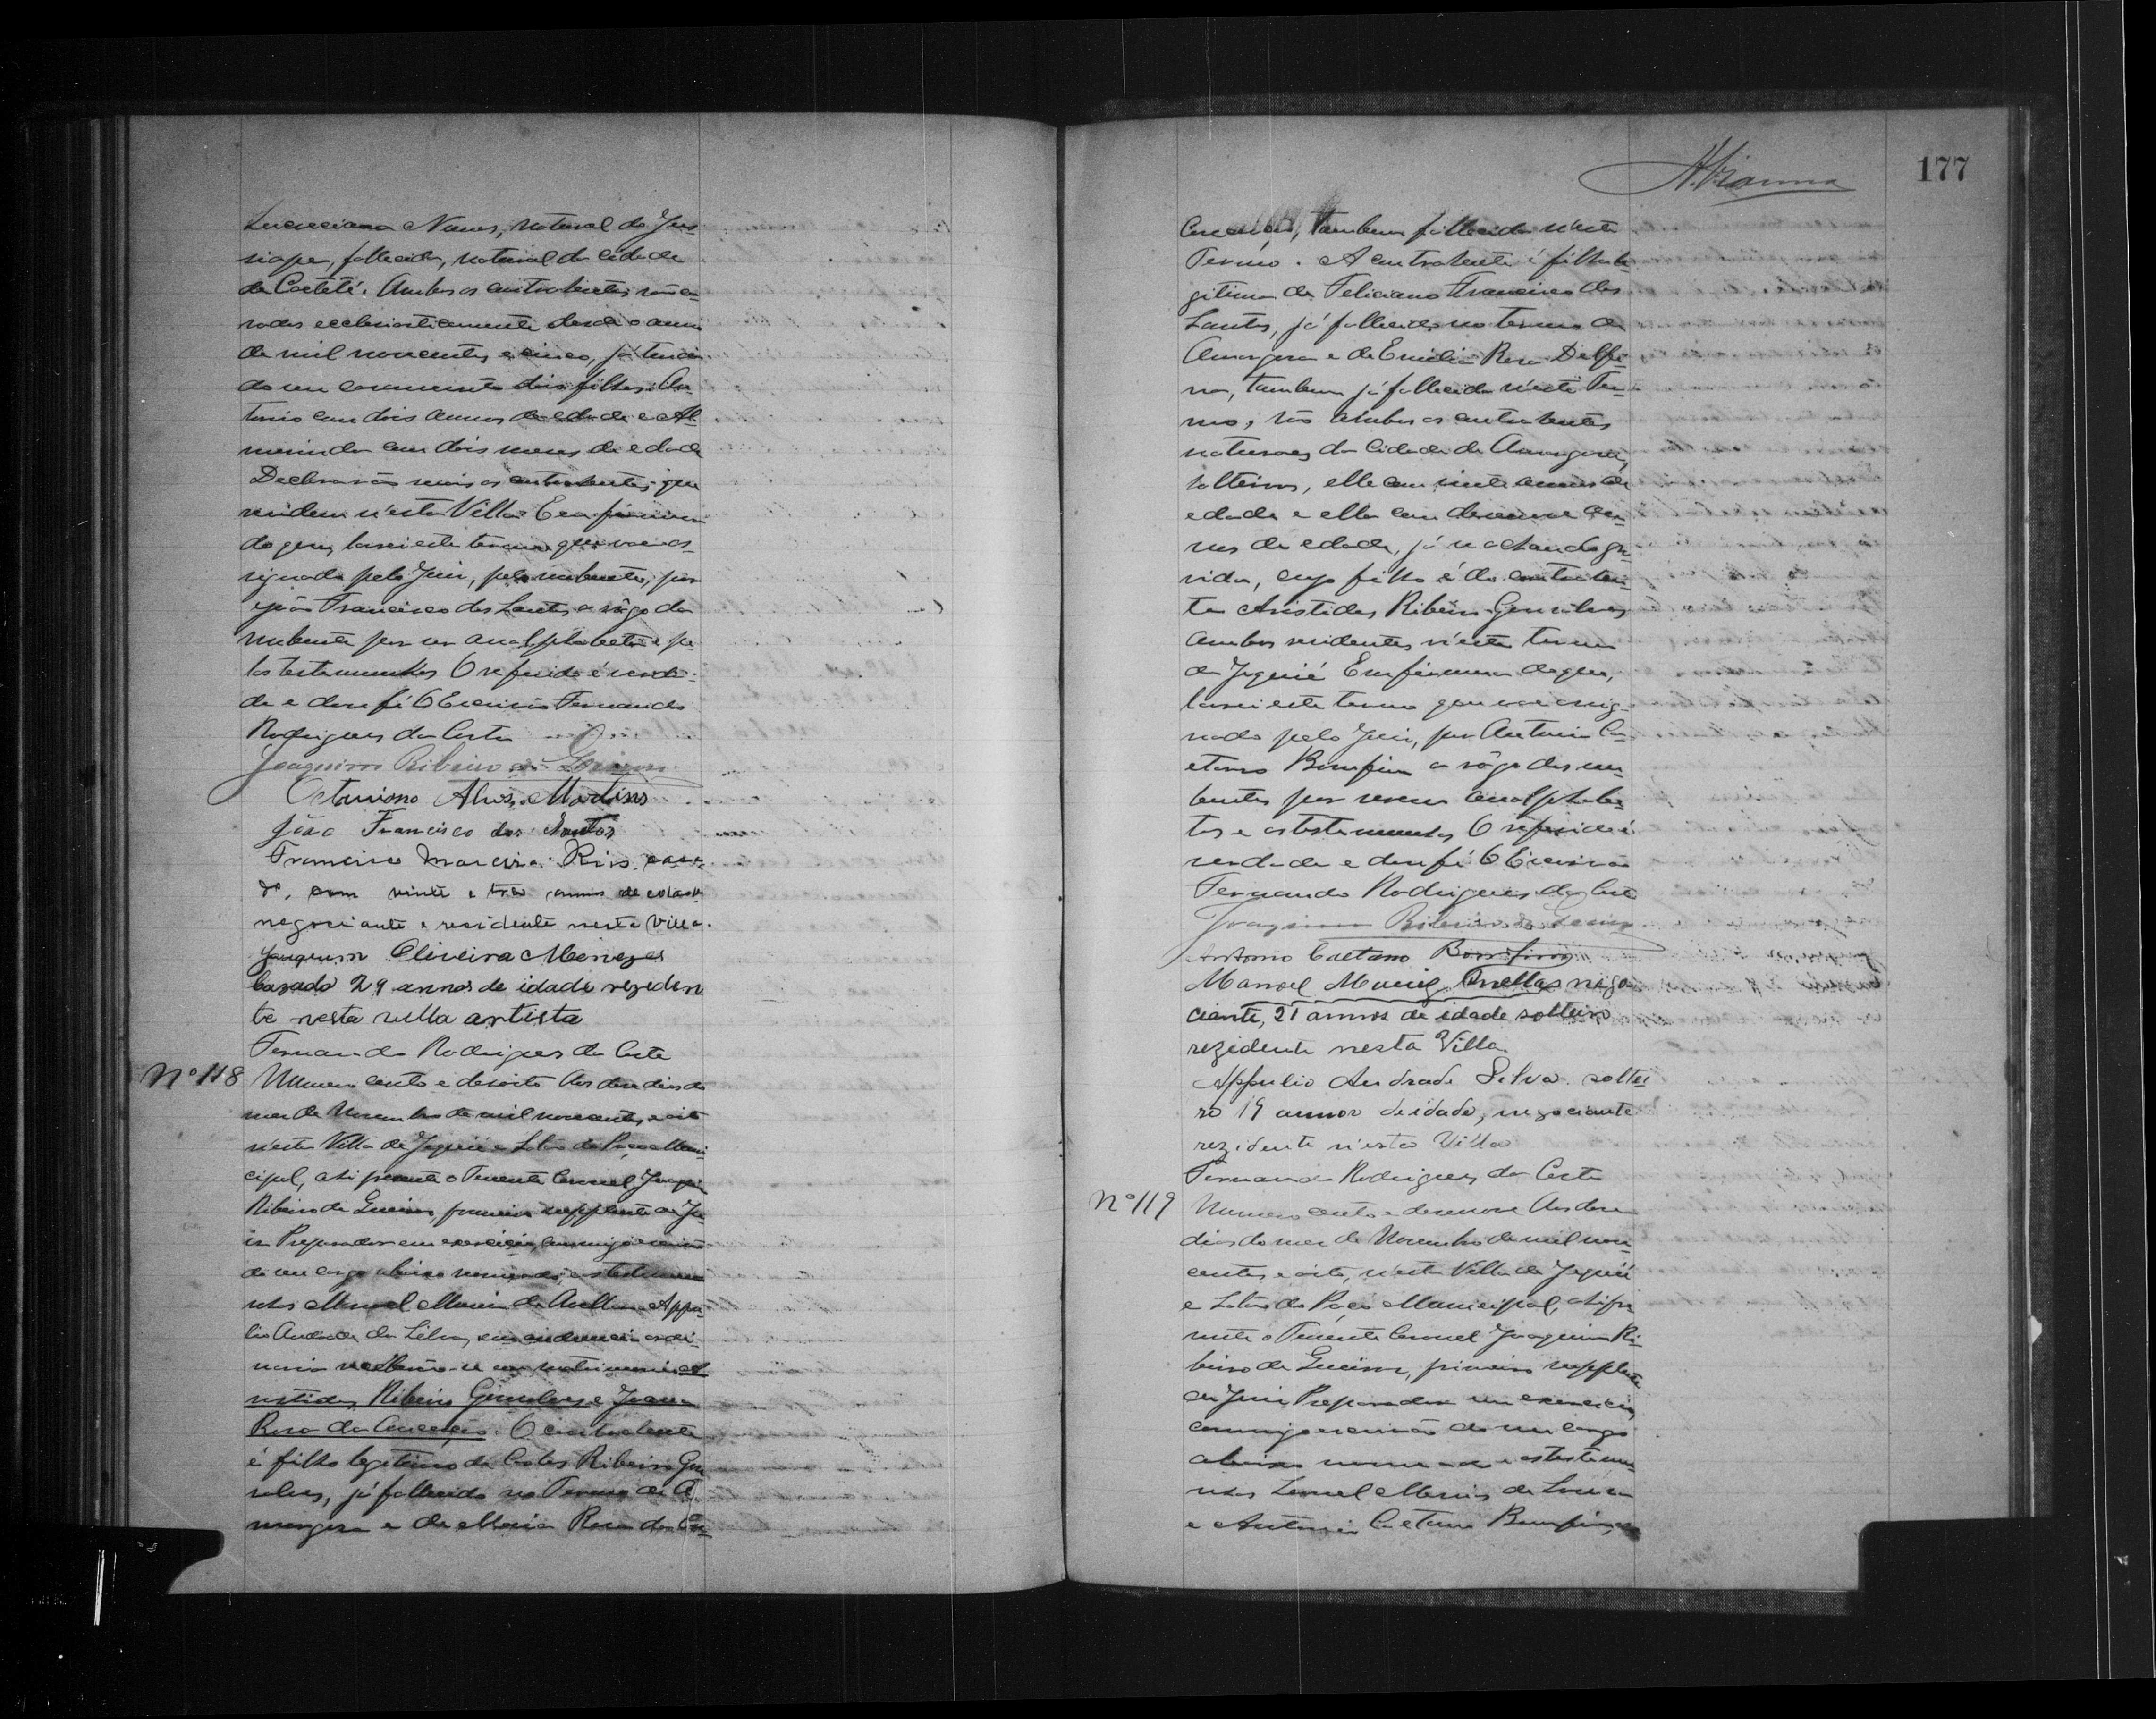 Nunes, natural do Jus-
siape, fallecida, natural da cidade
de Caeteté. Ambos os contrahentes são ca-
sados ecclesiasticamente desde o anno
de mil novecentos e cinco, já tendo
do seu casamento dois filhos: An-
tonio com dois annos de edade e Al-
merinda com dois meses de edade
Declararão mais os contrahentes que
residem n'esta Villa. E em firmeza
do que, lavrei este termo que vae as-
signado pelo Juiz, pelo nubente, por
João Francisco dos Santos a rôgo da
nubente por ser analphabeta e pe-
las testemunhas O referido é verda-
de e dou fé O Escrivão Fernando
Rodrigues da Costa
Joaquim Ribeiro de
Octaviano Alves Martins
João Francisco dos Santos
Francisco Moreira Rios casa-
do, com vinte e tres annos de edade
negociante e residente nesta Villa.
Joaquim Oliveira Menezes
Cazado 29 annos de idade reziden
te nesta villa artista
Fernando Rodrigues da Costa
Nº 118 Numero cento e dezoito Aos doze dias do
mez de Novembro de mil novecentos e oito
n'esta Villa de Jequié e Salão do Paço Muni-
cipal, ahi presente o Tenente Coronel Joaquim
Ribeiro de primeiro supplente de Ju-
iz Preparador em exercicio, commigo escrivão
do seu cargo abaixo nomeado, as testemu-
nhas Manoel Maria de Appu-
lio Andrade da Silva, em audiencia ordi-
naria receberão-se em matrimonio A-
ristides Ribeiro Gonsalves e Joanna
Rosa da Conceição. O contrahente
é filho legitimo de Carlos Ribeiro Gon-
salves, já fallecido no Termo de A-
margosa e de Maria Rosa da Con-
177
A. Vianna
Conceição, tambem fallecida n'este
Termo. A contrahente é filha le-
gitima de Feliciano Francisco dos
Santos, já fallecido no termo de
Amargosa e de Emilia Rosa Delfi-
na, tambem já fallecida n'este Ter-
mo, são ambos os contrahentes
naturaes da Cidade de Amargosa,
solteiros, elle com vinte annos de
edade e ella com desenove an-
nos de edade, já se achando gra-
vida, cujo filho é do contrahen-
te Aristides Ribeiro Gonsalves
ambos residentes n'este termo
de Jequié Em firmeza do que,
lavrei este termo que vae assig-
nado pelo Juiz, por Antonio Ca-
etano Bomfim a rôgo dos nu-
bentes por serem analphabe-
tos e as testemunhas O referido é
verdade e dou fé O Escrivão
Fernando Rodrigues da Costa
Joaquim Ribeiro de
Antonio Caetano Bomfim
Manoel nego-
ciante, 21 annos de idade solteiro
rezidente nesta Villa.
Appulio Andrade Silva soltei
ro 19 annos de idade, negociante
rezidente n'esta Villa
Fernando Rodrigues da Costa
Nº 119 Numero cento e desenove Aos doze
dias do mez de Novembro de mil nove-
centos e oito, n'esta Villa de Jequié
e Salão do Paço Municipal, ahi pre-
sente o Tenente Coronel Joaquim Ri-
beiro de primeiro supplente
de Juiz Preparador em exercicio,
commigo escrivão do seu cargo
abaixo nomeado e as testemu-
nhas Leonel Maria de Souza
e Antonio Caetano Bomfim,